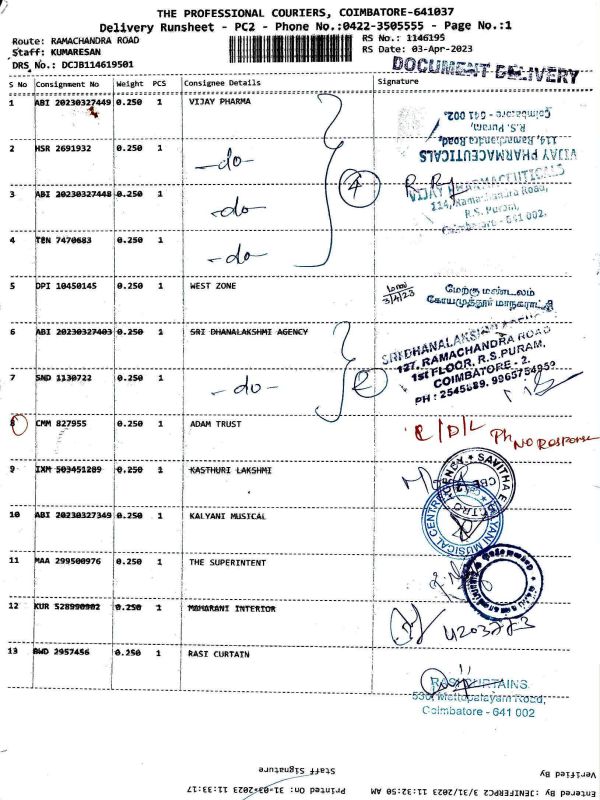 THE PROFESSIONAL COURIERS, COIMBATORE-641037
Delivery Runsheet - PC2 - Phone No.:0422-3505555 - Page No.:1
Route: RAMACHANDRA ROAD
RS No.: 1146195
Staff: KUMARESAN
RS Date: 03-Apr-2023
DRS No.: DCJB114619501
DOCUMENT DELIVERY
S No Consignment No Weight PCS Consignee Details Signature
1 ABI 20230327449 0.250 1 VIJAY PHARMA
VIJAY PHARMACEUTICALS
114, Ramachandra Road,
R.S. Puram,
Coimbatore - 641 002.
2 HSR 2691932 0.250 1 -do-
4
VIJAY PHARMACEUTICALS
114, Ramachandra Road,
R.S. Puram,
Coimbatore - 641 002.
3 ABI 20230327448 0.250 1 -do-
4 TEN 7470683 0.250 1 -do-
5 DPI 10450145 0.250 1 WEST ZONE
3/4/23
மேற்கு மண்டலம்
கோயமுத்தூர் மாநகராட்சி
6 ABI 20230327403 0.250 1 SRI DHANALAKSHMI AGENCY
127, RAMACHANDRA ROAD
1st FLOOR, R.S.PURAM,
COIMBATORE - 2.
PH : 2545689. 9965754959
7 SND 1130722 0.250 1 -do-
2
8 CMM 827955 0.250 1 ADAM TRUST
R/D/L Ph No RESPONSE
9 IXM 503451289 0.250 1 KASTHURI LAKSHMI
10 ABI 20230327349 0.250 1 KALYANI MUSICAL
KALYANI MUSICAL CENTRE
11 MAA 299500976 0.250 1 THE SUPERINTENT
12 KUR 528990902 0.250 1 MAHARANI INTERIOR
13 BWD 2957456 0.250 1 RASI CURTAIN
RASI CURTAINS
530, Mettupalayam Road,
Coimbatore - 641 002
Staff Signature
Verified By
Printed On: 31-03-2023 11:33:17
Entered By : JENIFERPC2 3/31/2023 11:32:50 AM